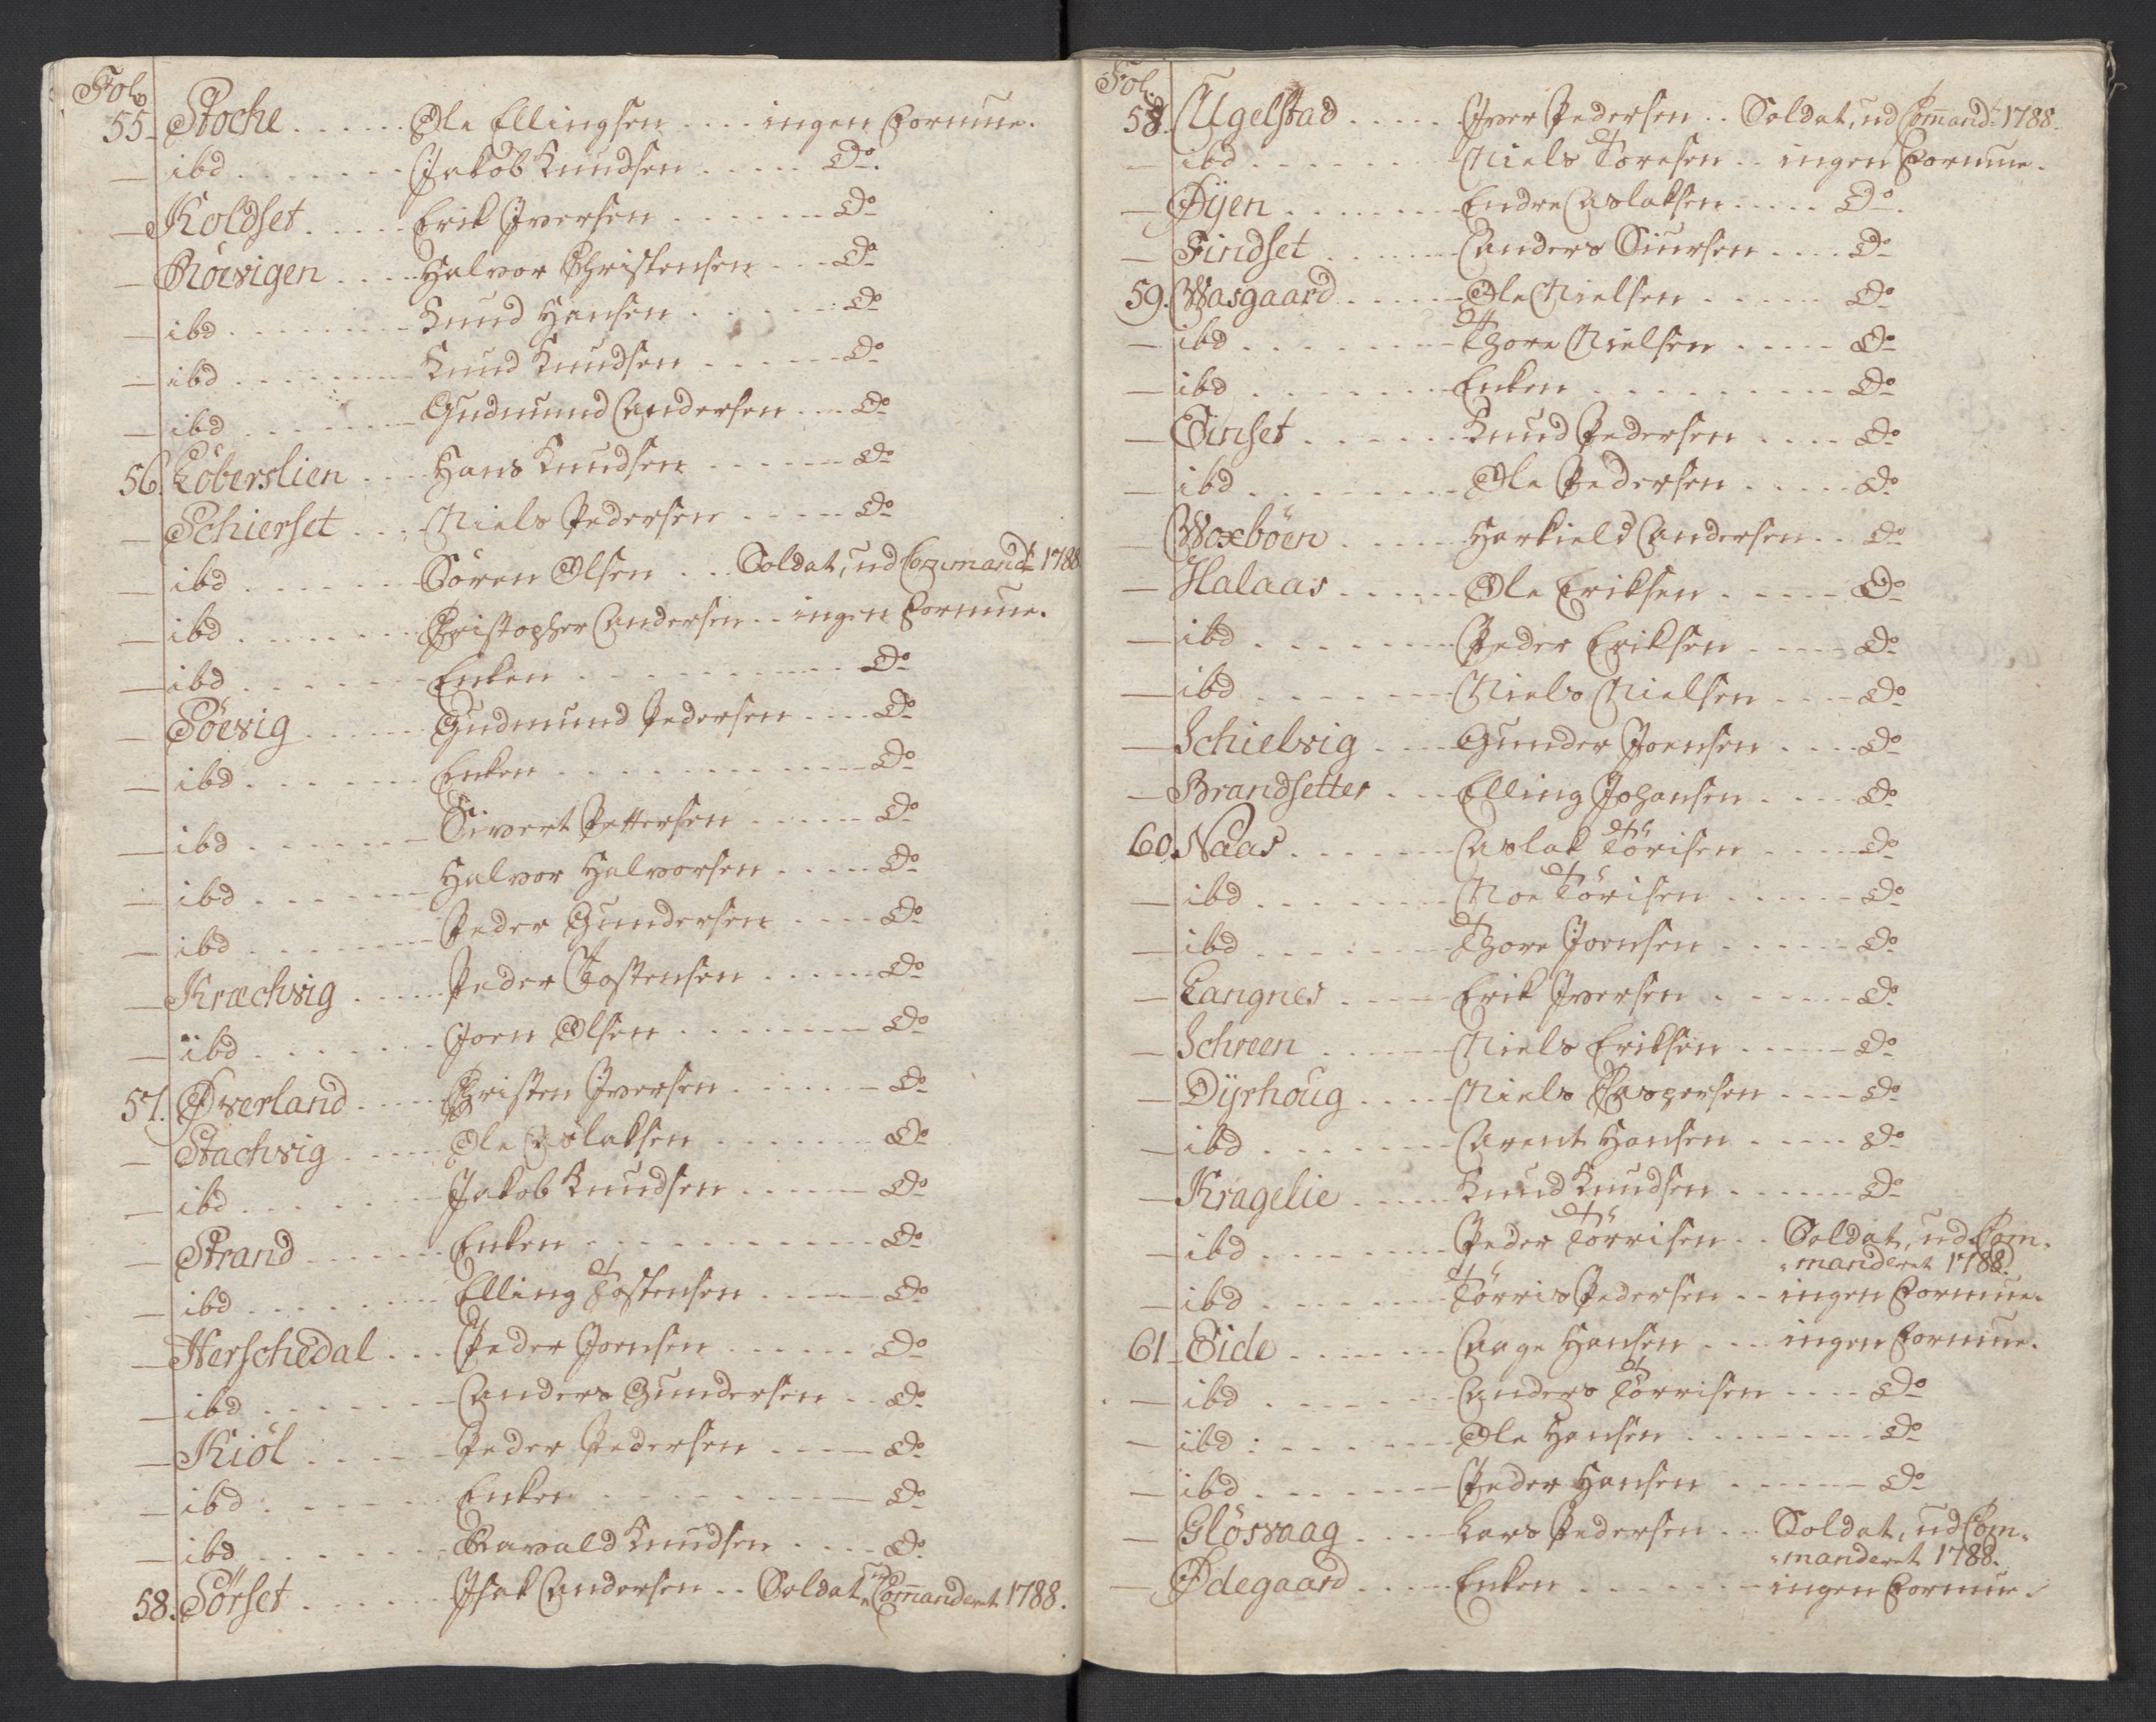 Fol.
55. Stoche . . . . . Ole Ellingsen . . . . ingen Formue.
— ibd . . . . . . . Jakob Knudsen . . . . . Do.
— Koldset . . . . . Erik Iversen . . . . . . Do
— Röevigen . . . . Halvor Christensen . . . Do
— ibd . . . . . . . Knud Hansen . . . . . . Do
— ibd . . . . . . . Knud Knudsen . . . . . Do
— ibd . . . . . . . Gudmund Andersen . . . Do
56. Löberslien . . . Hans Knudsen . . . . . . Do
— Schierset . . . Niels Pedersen . . . . . Do
— ibd . . . . . . Sören Olsen . . . Soldat, ud Commandt 1788
— ibd . . . . . . . Christopher Andersen . . ingen Formue.
— ibd . . . . . . Enken . . . . . . . . . Do
— Söevig . . . . . Gudmund Pedersen . . . . Do
— ibd . . . . . . Enken . . . . . . . . . . Do
— ibd . . . . . . Sivert Pettersen . . . . . Do
— ibd . . . . . . Halvor Halvorsen . . . . . Do
— ibd . . . . . . . Peder Gundersen . . . . Do
— Kræchvig . . . . Peder Tostensen . . . . . Do
— ibd . . . . . . Joen Olsen . . . . . . . . Do
57. Øverland . . . . Christen Iversen . . . . . Do
— Stachvig . . . . Ole Aslaksen . . . . . . Do
— ibd . . . . . . Jakob Knudsen . . . . . Do
— Strand . . . . . . Enken . . . . . . . . . . Do
— ibd . . . . . . . Elling Tostensen . . . . . Do
— Herschedal . . . Peder Joensen . . . . . . Do
— ibd . . . . . . . Anders Gundersen . . Do
— Kiöl . . . . . Peder Pedersen . . . . Do
— ibd . . . . . Enken . . . . . . . . . Do
— ibd . . . . . . Ravald Knudsen . . . . Do
58. Sörset . . . . . . Isak Andersen . . Soldat, ud Commanderet 1788.
Fol.
58. Ugelstad . . . . . Iver Pedersen . . Soldat, ud Commandt 1788.
— ibd . . . . . . . Niels Toresen . . ingen Formue.
— Øÿen . . . . . . . Endre Aslaksen . . . . . Do.
— Findset . . . . . . Anders Siursen . . . . Do
59. Wasgaard . . . . . Ole Nielsen . . . . . Do
— ibd . . . . . . . Thore Nielsen . . . . Do
— ibd . . . . . . . Enken . . . . . . . . . Do
— Tinset . . . . . . Knud Pedersen . . . . Do
— ibd . . . . . . . Ole Pedersen . . . . . Do
— Woxböen . . . . Harkield Andersen . . Do
— Halaas . . . . . . Ole Eriksen . . . . . Do
— ibd . . . . . . . Peder Eriksen . . . . . Do
— ibd . . . . . . . Niels Nielsen . . . . Do
— Schielvig . . . . Gunder Joensen . . . . Do
— Brandsetter . . . Elling Johansen . . . . Do
60. Naas . . . . . . Aslak Törisen . . . . Do
— ibd . . . . . . . Noe Törisen . . . . . . Do
— ibd . . . . . . . Thore Joensen . . . . . Do
— Langnes . . . . Erik Iversen . . . . . . Do
— Schreen . . . . . Niels Eriksen . . . . . Do
— Dÿrhoug . . . . Niels Caspersen . . . . Do
— ibd . . . . . . . Arent Hansen . . . . . Do
— Kragelie . . . . . Knud Knudsen . . . . . . Do
— ibd . . . . . . . Peder Törrisen . . Soldat, ud Com-
manderet 1788.
— ibd . . . . . . . Törris Pedersen . . ingen Formue.
61. Eide . . . . . . Aage Hansen . . . ingen Formue.
— ibd . . . . . . Anders Törrisen . . . . Do
— ibd . . . . . . . Ole Hansen . . . . . . . Do
— ibd . . . . . . . Peder Hansen . . . . . . Do
— Glösvaag . . . . Lars Pedersen . . . Soldat, ud Com-
manderet 1788.
— Ødegaard . . . . Enken . . . . . . . ingen Formue.